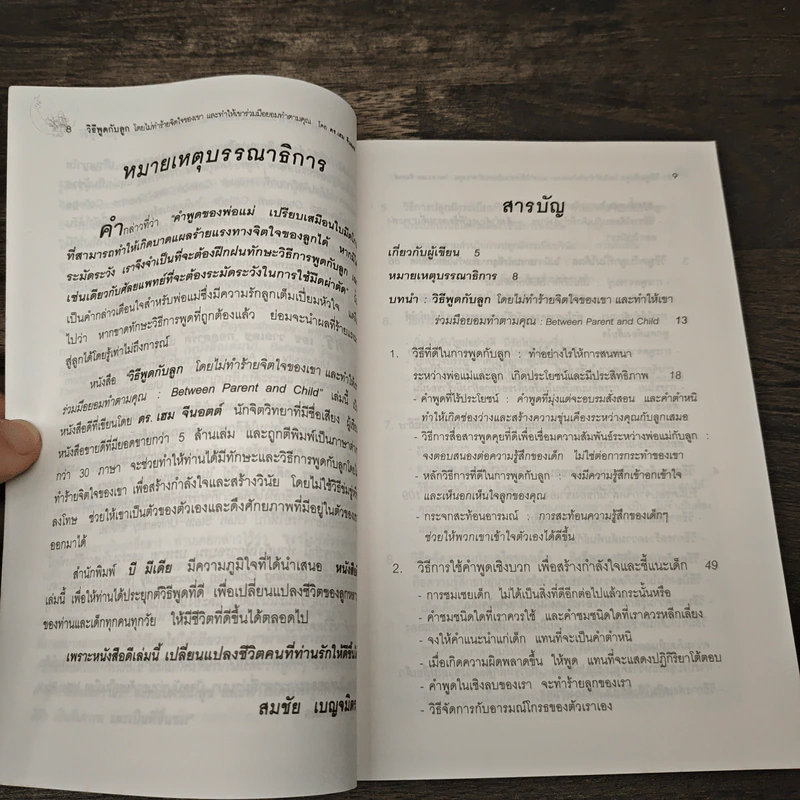 8 วิธีพูดกับลูก โดยไม่ทำร้ายจิตใจของเขา และทำให้เขาร่วมมือยอมทำตามคุณ โดย ดร.เฮม
หมายเหตุบรรณาธิการ
คำกล่าวที่ว่า "คำพูดของพ่อแม่ เปรียบเสมือนใบมีด
ที่สามารถทำให้เกิดบาดแผลร้ายแรงทางจิตใจของลูกได้ หาก
ระมัดระวัง เราจึงจำเป็นที่จะต้องฝึกฝนทักษะวิธีการพูดกับลูก
เช่นเดียวกับศัลยแพทย์ที่จะต้องระมัดระวังในการใช้มีดผ่าตัด"
เป็นคำกล่าวเตือนใจสำหรับพ่อแม่ซึ่งมีความรักลูกเต็มเปี่ยมหัวใจ
ไปว่า หากขาดทักษะวิธีการพูดที่ถูกต้องแล้ว ย่อมจะนำผลที่ร้าย
สู่ลูกได้โดยรู้เท่าไม่ถึงการณ์
หนังสือ "วิธีพูดกับลูก โดยไม่ทำร้ายจิตใจของเขา และทำให้
ร่วมมือยอมทำตามคุณ : Between Parent and Child" เล่มนี้
หนังสือดีที่เขียนโดย ดร. เฮม จีนอตต์ นักจิตวิทยาที่มีชื่อเสียง
หนังสือขายดีที่มียอดขายกว่า 5 ล้านเล่ม และถูกตีพิมพ์เป็นภาษา
กว่า 30 ภาษา จะช่วยทำให้ท่านได้มีทักษะและวิธีการพูดกับลูก
ทำร้ายจิตใจของเขา เพื่อสร้างกำลังใจและสร้างวินัย โดยไม่ใช้วิธี
ลงโทษ ช่วยให้เขาเป็นตัวของตัวเองและดึงศักยภาพที่มีอยู่ในตัวของ
ออกมาได้
สำนักพิมพ์ บี มีเดีย มีความภูมิใจที่ได้นำเสนอ หนังสือ
เล่มนี้ เพื่อให้ท่านได้ประยุกต์วิธีพูดที่ดี เพื่อเปลี่ยนแปลงชีวิตของลูก
ของท่านและเด็กทุกคนทุกวัย ให้มีชีวิตที่ดีขึ้นได้ตลอดไป
เพราะหนังสือดีเล่มนี้ เปลี่ยนแปลงชีวิตคนที่ท่านรักให้ดีขึ้น
สมชัย
9
สารบัญ
เกี่ยวกับผู้เขียน 5
หมายเหตุบรรณาธิการ 8
บทนำ : วิธีพูดกับลูก โดยไม่ทำร้ายจิตใจของเขา และทำให้เขา
ร่วมมือยอมทำตามคุณ : Between Parent and Child 13
1. วิธีที่ดีในการพูดกับลูก : ทำอย่างไรให้การสนทนา
ระหว่างพ่อแม่และลูก เกิดประโยชน์และมีประสิทธิภาพ 18
- คำพูดที่ไร้ประโยชน์ : คำพูดที่มุ่งแต่จะอบรมสั่งสอน และคำตำหนิ
ทำให้เกิดช่องว่างและสร้างความขุ่นเคืองระหว่างคุณกับลูกเสมอ
- วิธีการสื่อสารพูดคุยที่ดีเพื่อเชื่อมความสัมพันธ์ระหว่างพ่อแม่กับลูก :
จงตอบสนองต่อความรู้สึกของเด็ก ไม่ใช่ต่อการกระทำของเขา
- หลักวิธีการที่ดีในการพูดกับลูก : จงมีความรู้สึกเข้าอกเข้าใจ
และเห็นอกเห็นใจลูกของคุณ
- กระจกสะท้อนอารมณ์ : การสะท้อนความรู้สึกของเด็กๆ
ช่วยให้พวกเขาเข้าใจตัวเองได้ดีขึ้น
2. วิธีการใช้คำพูดเชิงบวก เพื่อสร้างกำลังใจและชี้แนะเด็ก 49
- การชมเชยเด็ก ไม่ได้เป็นสิ่งที่ดีอีกต่อไปแล้วกระนั้นหรือ
- คำชมชนิดใดที่เราควรใช้ และคำชมชนิดใดที่เราควรหลีกเลี่ยง
- จงให้คำแนะนำแก่เด็ก แทนที่จะเป็นคำตำหนิ
- เมื่อเกิดความผิดพลาดขึ้น ให้พูด แทนที่จะแสดงปฏิกิริยาโต้ตอบ
- คำพูดในเชิงลบของเรา จะทำร้ายลูกของเรา
- วิธีจัดการกับอารมณ์โกรธของตัวเราเอง